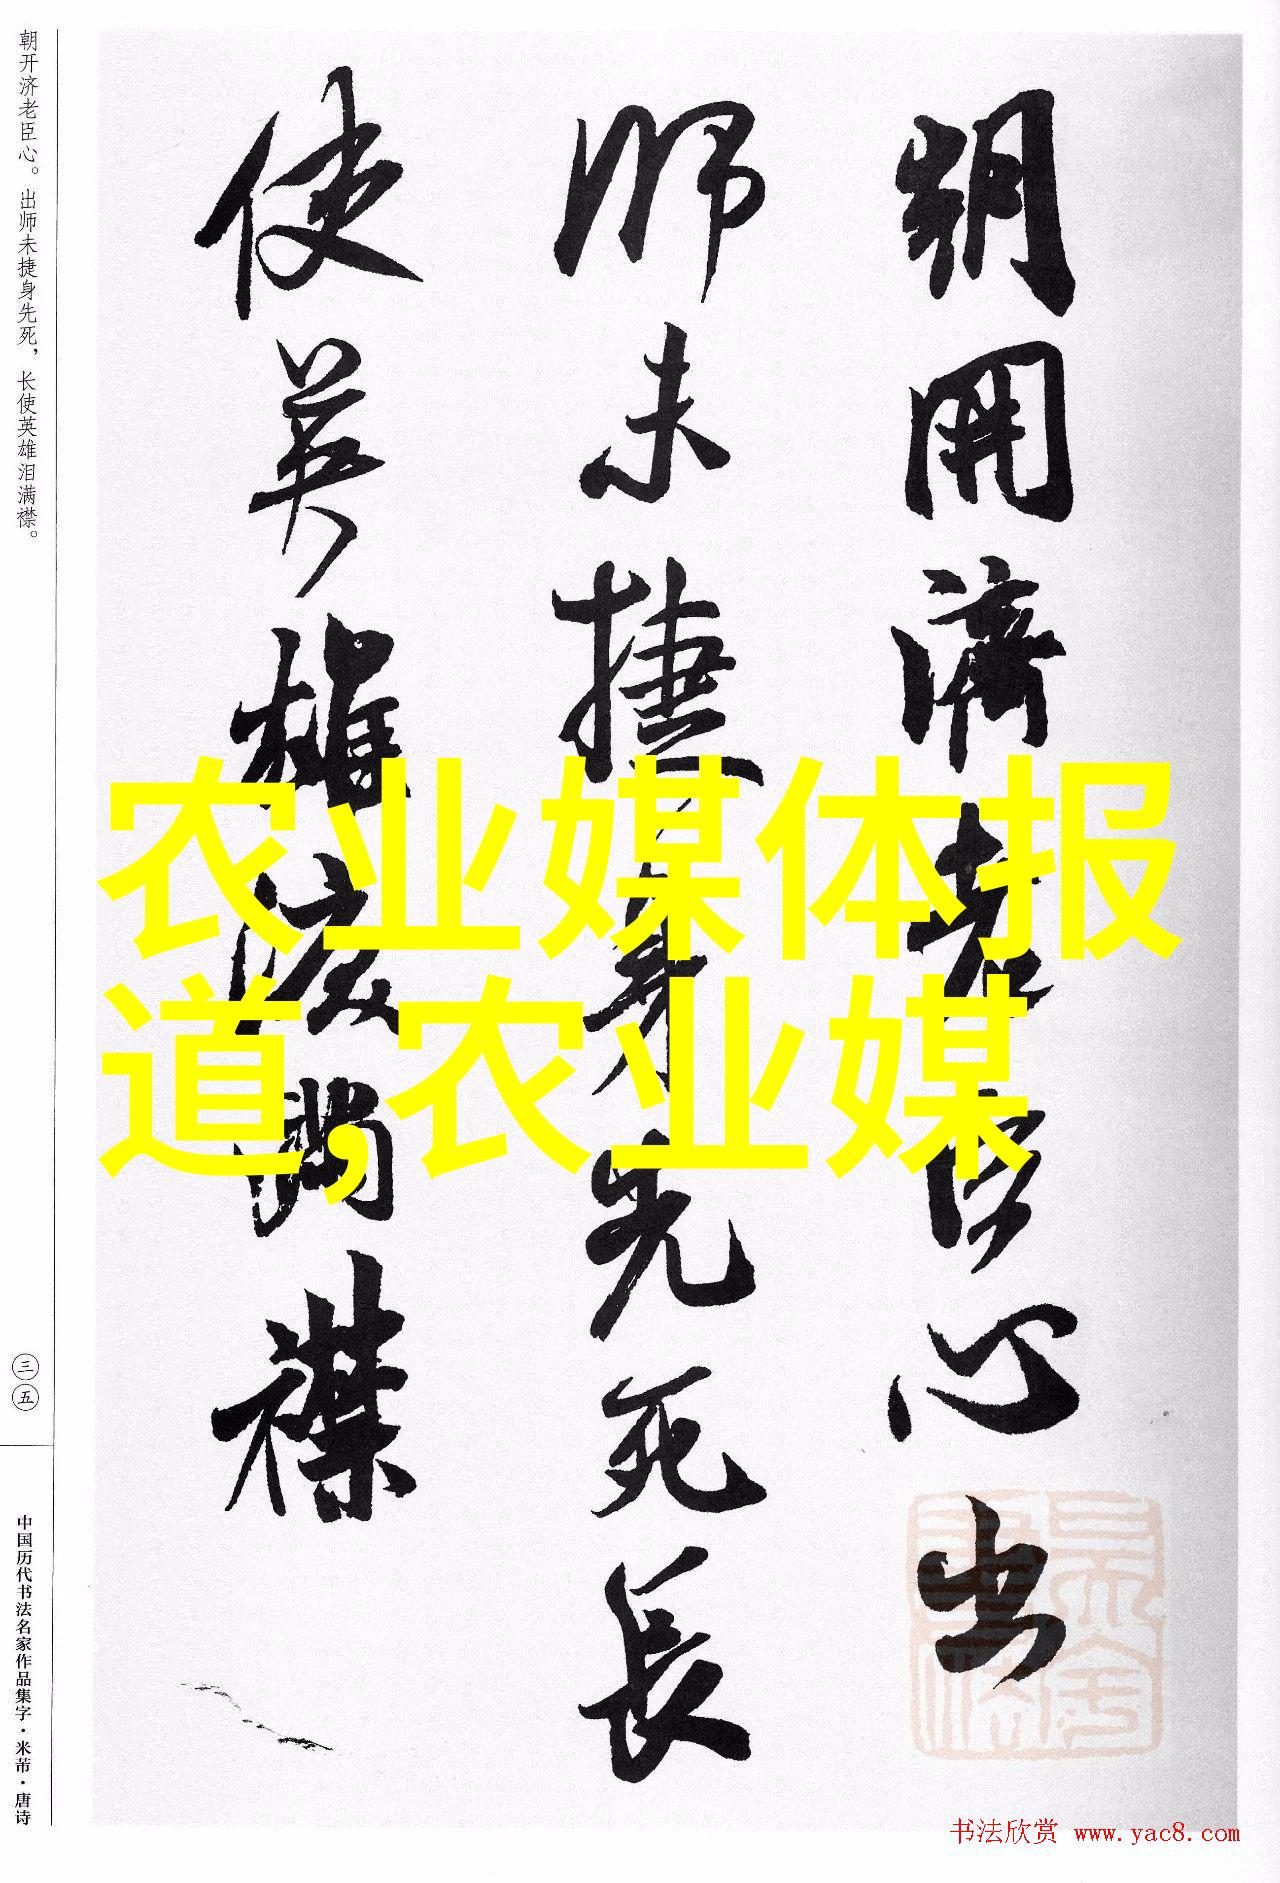 朝开济老臣心。出师未捷身先死，长使英雄泪满襟。
朝開濟老臣心出
師未捷身先死長
使英雄淚滿襟
农业媒体报
道,农业媒
三五
中国历代书法名家作品集字·米芾·唐诗
书法欣赏 www.yac8.com